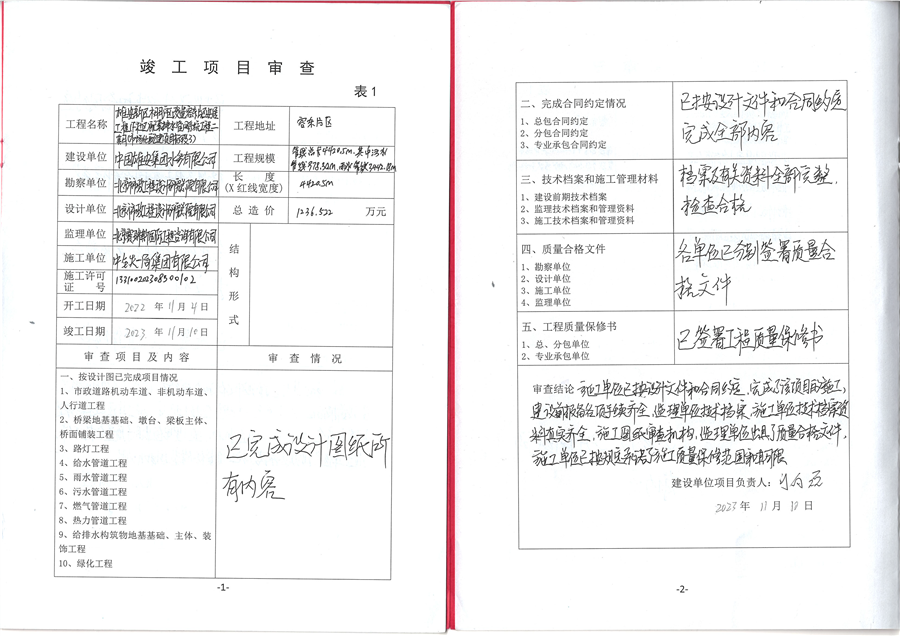 竣工项目审查
表1
工程名称
工程地址 容东片区
建设单位 中国雄安集团水务有限公司
工程规模
勘察单位
长度
(X红线宽度) 4420.5m
设计单位
总造价 1236.522 万元
监理单位
结构形式
施工单位
施工许可证号
开工日期 2022 年 11 月 4 日
竣工日期 2023 年 11 月 10 日
审查项目及内容 审查情况
一、按设计图已完成项目情况
1、市政道路机动车道、非机动车道、
人行道工程
2、桥梁地基基础、墩台、梁板主体、
桥面铺装工程
3、路灯工程
4、给水管道工程
5、雨水管道工程
6、污水管道工程
7、燃气管道工程
8、热力管道工程
9、给排水构筑物地基基础、主体、装
饰工程
10、绿化工程
已完成设计图纸所
有内容
-1-
二、完成合同约定情况
1、总包合同约定
2、分包合同约定
3、专业承包合同约定
已按设计文件和合同约定
完成全部内容
三、技术档案和施工管理材料
1、建设前期技术档案
2、监理技术档案和管理资料
3、施工技术档案和管理资料
档案及相关资料全部完整,
检查合格
四、质量合格文件
1、勘察单位
2、设计单位
3、施工单位
4、监理单位
各单位已分别签署质量合
格文件
五、工程质量保修书
1、总、分包单位
2、专业承包单位
已签署工程质量保修书
审查结论: 施工单位已按设计文件和合同约定,完成了该项目的施工,
建设前期各项手续齐全,监理单位技术档案、施工单位技术档案资
料真实齐全,施工图纸审查机构,监理单位出具了质量合格文件,
施工单位已按规定承诺了施工质量保修范围和期限
建设单位项目负责人:
2023 年 11 月 10 日
-2-